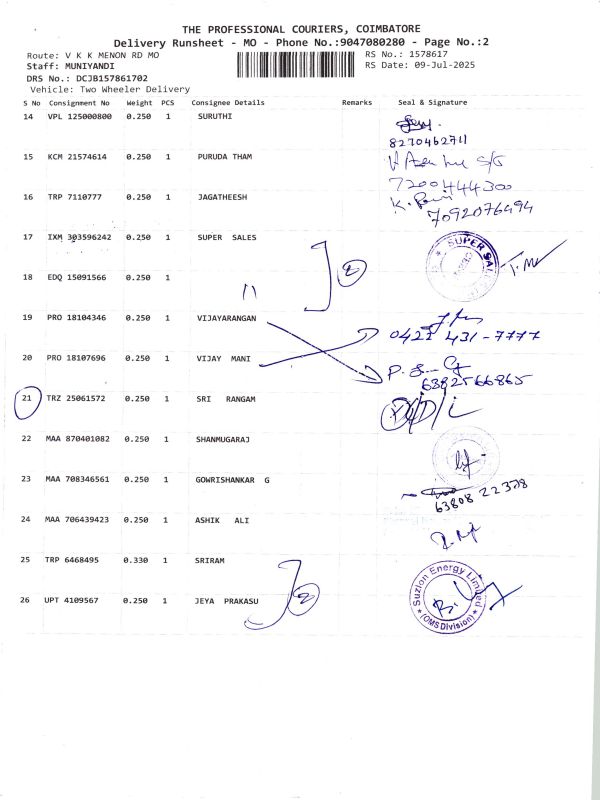 THE PROFESSIONAL COURIERS, COIMBATORE
Delivery Runsheet - MO - Phone No.:9047080280 - Page No.:2
Route: V K K MENON RD MO
Staff: MUNIYANDI
DRS No.: DCJB157861702
Vehicle: Two Wheeler Delivery
RS No.: 1578617
RS Date: 09-Jul-2025
S No Consignment No Weight PCS Consignee Details Remarks Seal & Signature
14 VPL 125000800 0.250 1 SURUTHI
8270462711
15 KCM 21574614 0.250 1 PURUDA THAM
7200444300
16 TRP 7110777 0.250 1 JAGATHEESH
7092076494
17 IXM 303596242 0.250 1 SUPER SALES
2
SUPER SALES
18 EDQ 15091566 0.250 1
"
19 PRO 18104346 0.250 1 VIJAYARANGAN
0422 431-7777
20 PRO 18107696 0.250 1 VIJAY MANI
6382566865
21 TRZ 25061572 0.250 1 SRI RANGAM
22 MAA 870401082 0.250 1 SHANMUGARAJ
23 MAA 708346561 0.250 1 GOWRISHANKAR G
63808 22378
24 MAA 706439423 0.250 1 ASHIK ALI
25 TRP 6468495 0.330 1 SRIRAM
2
26 UPT 4109567 0.250 1 JEYA PRAKASU
Suzlon Energy Limited
(OMS Division)